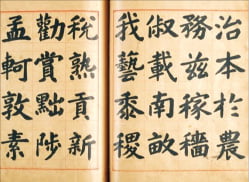 治本於農
務茲稼穡
俶載南畝
我藝黍稷
稅熟貢新
勸賞黜陟
孟軻敦素